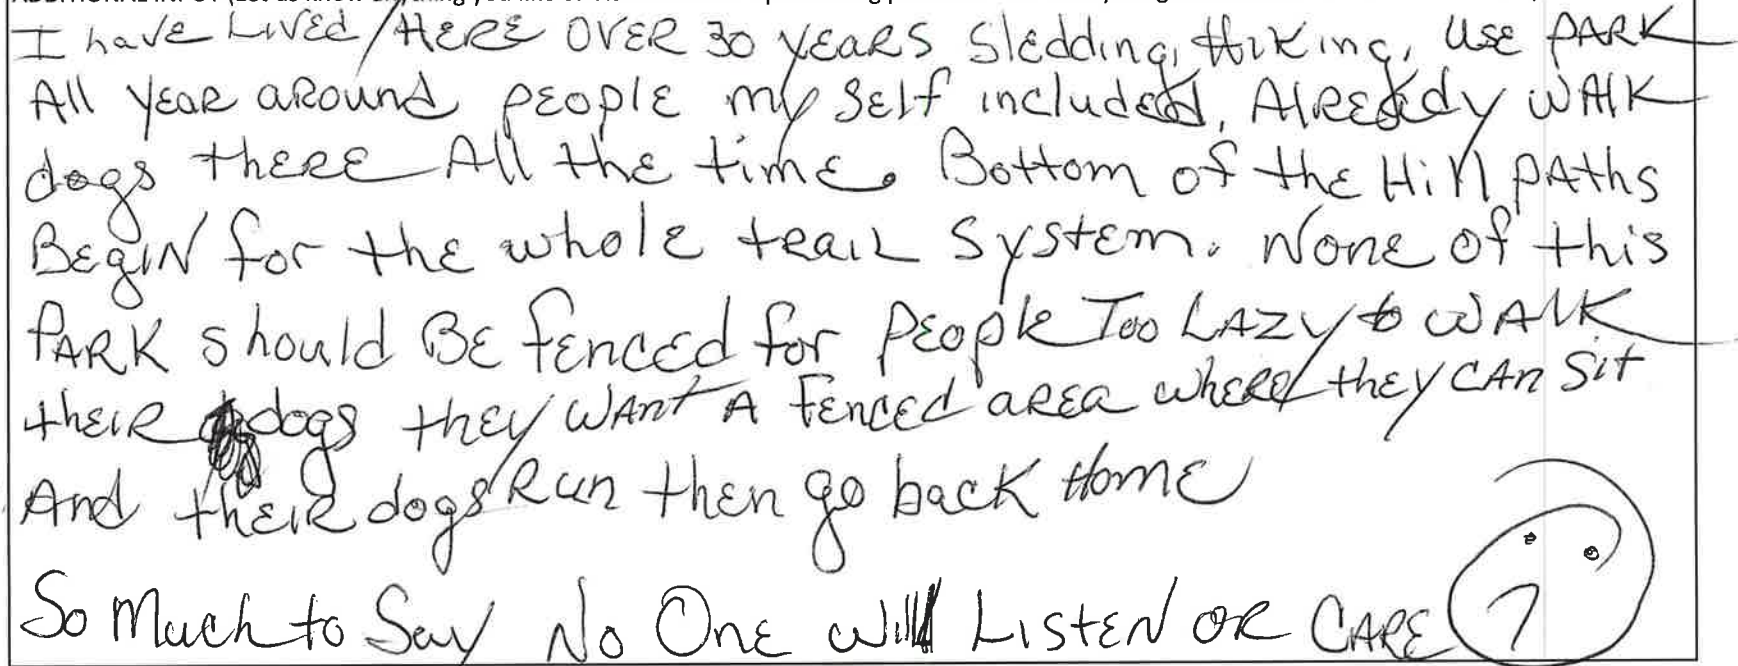 I have Lived HERE OVER 30 YEARS Sledding, HiKing, USE PARK
All YEAR aROund PEOPLE my SElf included, AlREAdy WAlK
dogs thERE All thE timE. Bottom of thE Hill PAths
BEgiN for thE wholE tRaiL SystEm. NonE of this
PARK should BE fEncEd for PEoplE Too LAZy to WAlK
thEiR dogs thEy WAnt A fEncEd aREa whERE thEy CAn Sit
And thEiR dogs Run thEn go back HomE
So Much to Say No OnE will LiStEN OR CARE